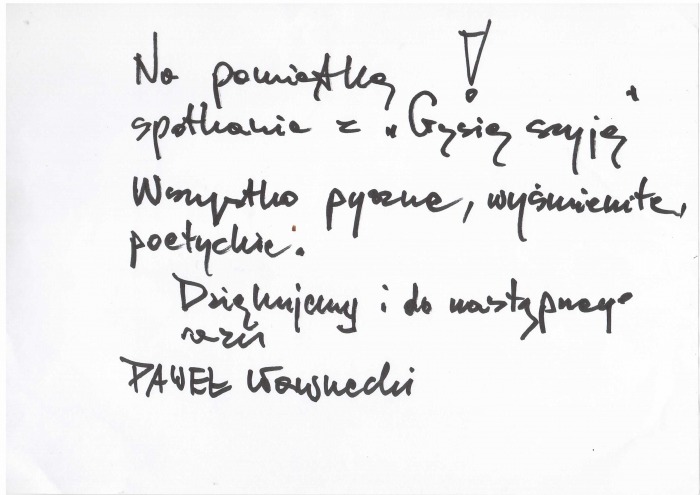 Na pamiątkę !
spotkania z „Gęsią szyją”
Wszystko pyszne, wyśmienite,
poetyckie.
Dziękujemy i do następnego
razu
PAWEŁ